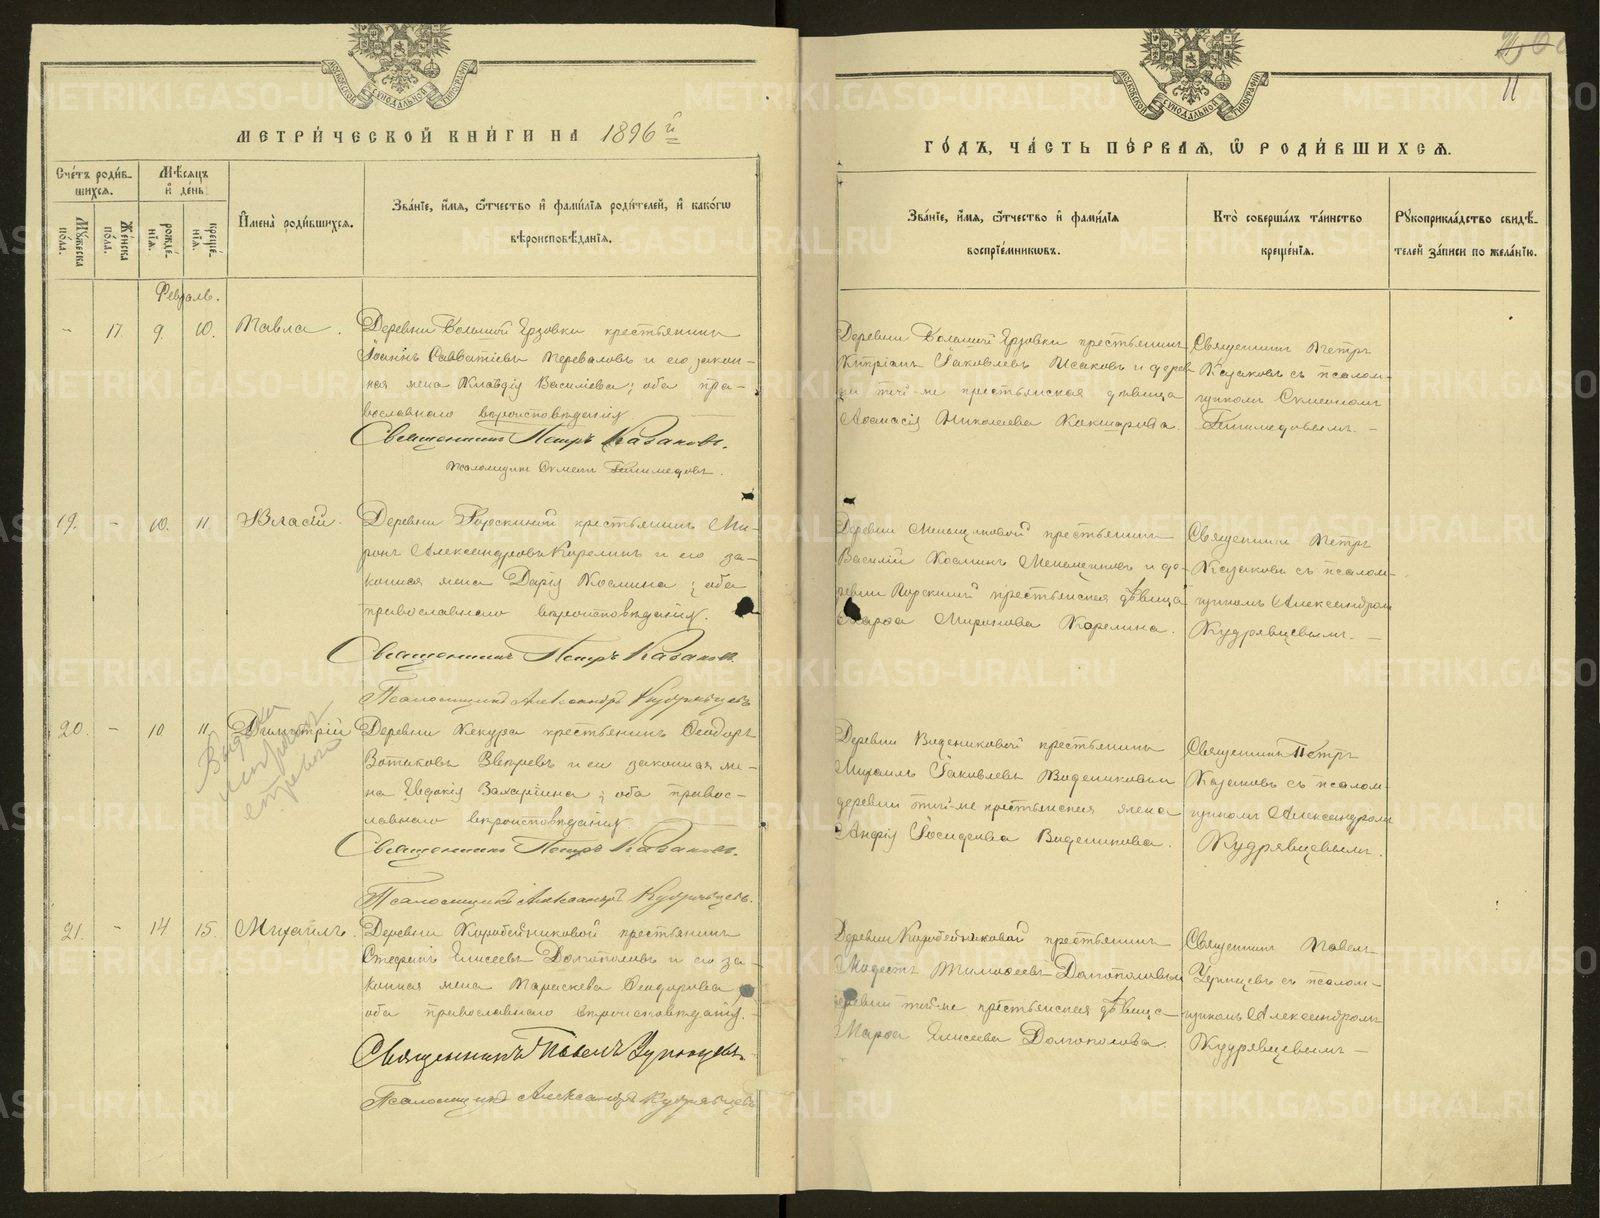 МЕТРИ́ЧЕСКОЙ КНИ́ГИ НА 1896 й
Сче́тъ роди́в-
шихся.
Мѣ́сяцъ
и де́нь
Му́жеска
по́ла.
Же́нска
по́ла.
рожде́-
нїя.
креще́-
нїя.
И҆мена̀ роди́вшихся.
Зва́нїе, и҆́мя, ѻ҆́тчество и҆ фами́лїя роди́телей, и҆ како́гѡ
вѣроисповѣ́данїя.
Февраль.
- 17. 9. 10. Павла.
Деревни Большой Ерзовки крестьянинъ
Іоаннъ Савватіевъ Переваловъ и его закон-
ная жена Клавдія Василіева; оба пра-
вославнаго вѣроисповѣданія.
Священникъ Петръ Казаковъ.
Псаломщикъ Симеонъ
19. - 10. 11. Власій.
Деревни крестьянинъ Ми-
ронъ Александровъ Карелинъ и его за-
конная жена Дарія Космина; оба
православнаго вѣроисповѣданія.
Священникъ Петръ Казаковъ.
Псаломщикъ Александръ Кудрявцевъ
20. - 10 11. Димитрій
Деревни Кекура крестьянинъ Ѳеодоръ
Звѣревъ и его законная же-
на Евдокія Захаріина; оба правос-
лавнаго вѣроисповѣданія.
Священникъ Петръ Казаковъ.
Псаломщикъ Александръ Кудрявцевъ.
21. - 14 15. Михаилъ.
Деревни Коробейниковой крестьянинъ
Стефанъ Елисеевъ Долгополовъ и его за-
конная жена Параскева Ѳеодорова,
оба православнаго вѣроисповѣданія.
Священникъ Павелъ
Псаломщикъ Александръ Кудрявцевъ
11
ГО́ДЪ, ЧА́СТЬ ПЕ́РВАЯ, Ѡ҆ РОДИ́ВШИХСЯ.
Зва́нїе, и҆́мя, ѻ҆́тчество и҆ фами́лїя
воспрїе́мникѡвъ.
Кто̀ соверша́лъ та́инство
креще́нїя.
Рꙋкоприкла́дство свидѣ́-
телей за́писи по жела́нїю.
Деревни Большой Ерзовки крестьянинъ
Кипріанъ Іаковлевъ Исаковъ и дерев-
ни той-же крестьянская дѣвица
Аѳанасія Николаева Кокшарова.
Священникъ Петръ
Казаковъ съ псалом-
щикомъ Симеономъ
Деревни Меньщиковой крестьянинъ
Василій Косминъ Меньщиковъ и де-
ревни крестьянская дѣвица
Марѳа Миронова Карелина.
Священникъ Петръ
Казаковъ съ псалом-
щикомъ Александромъ
Кудрявцевымъ. -
Деревни крестьянинъ
Михаилъ Іаковлевъ и
деревни той-же крестьянская жена
Священникъ Петръ
Казаковъ съ псалом-
щикомъ Александромъ
Кудрявцевымъ.
Деревни Коробейниковой крестьянинъ
Модестъ Тимоѳеевъ Долгополовъ и
деревни той-же крестьянская дѣвица
Марѳа Елисеева Долгополова.
Священникъ Павелъ
съ псалом-
щикомъ Александромъ
Кудрявцевымъ -
METRIKI.GASO-URAL.RU